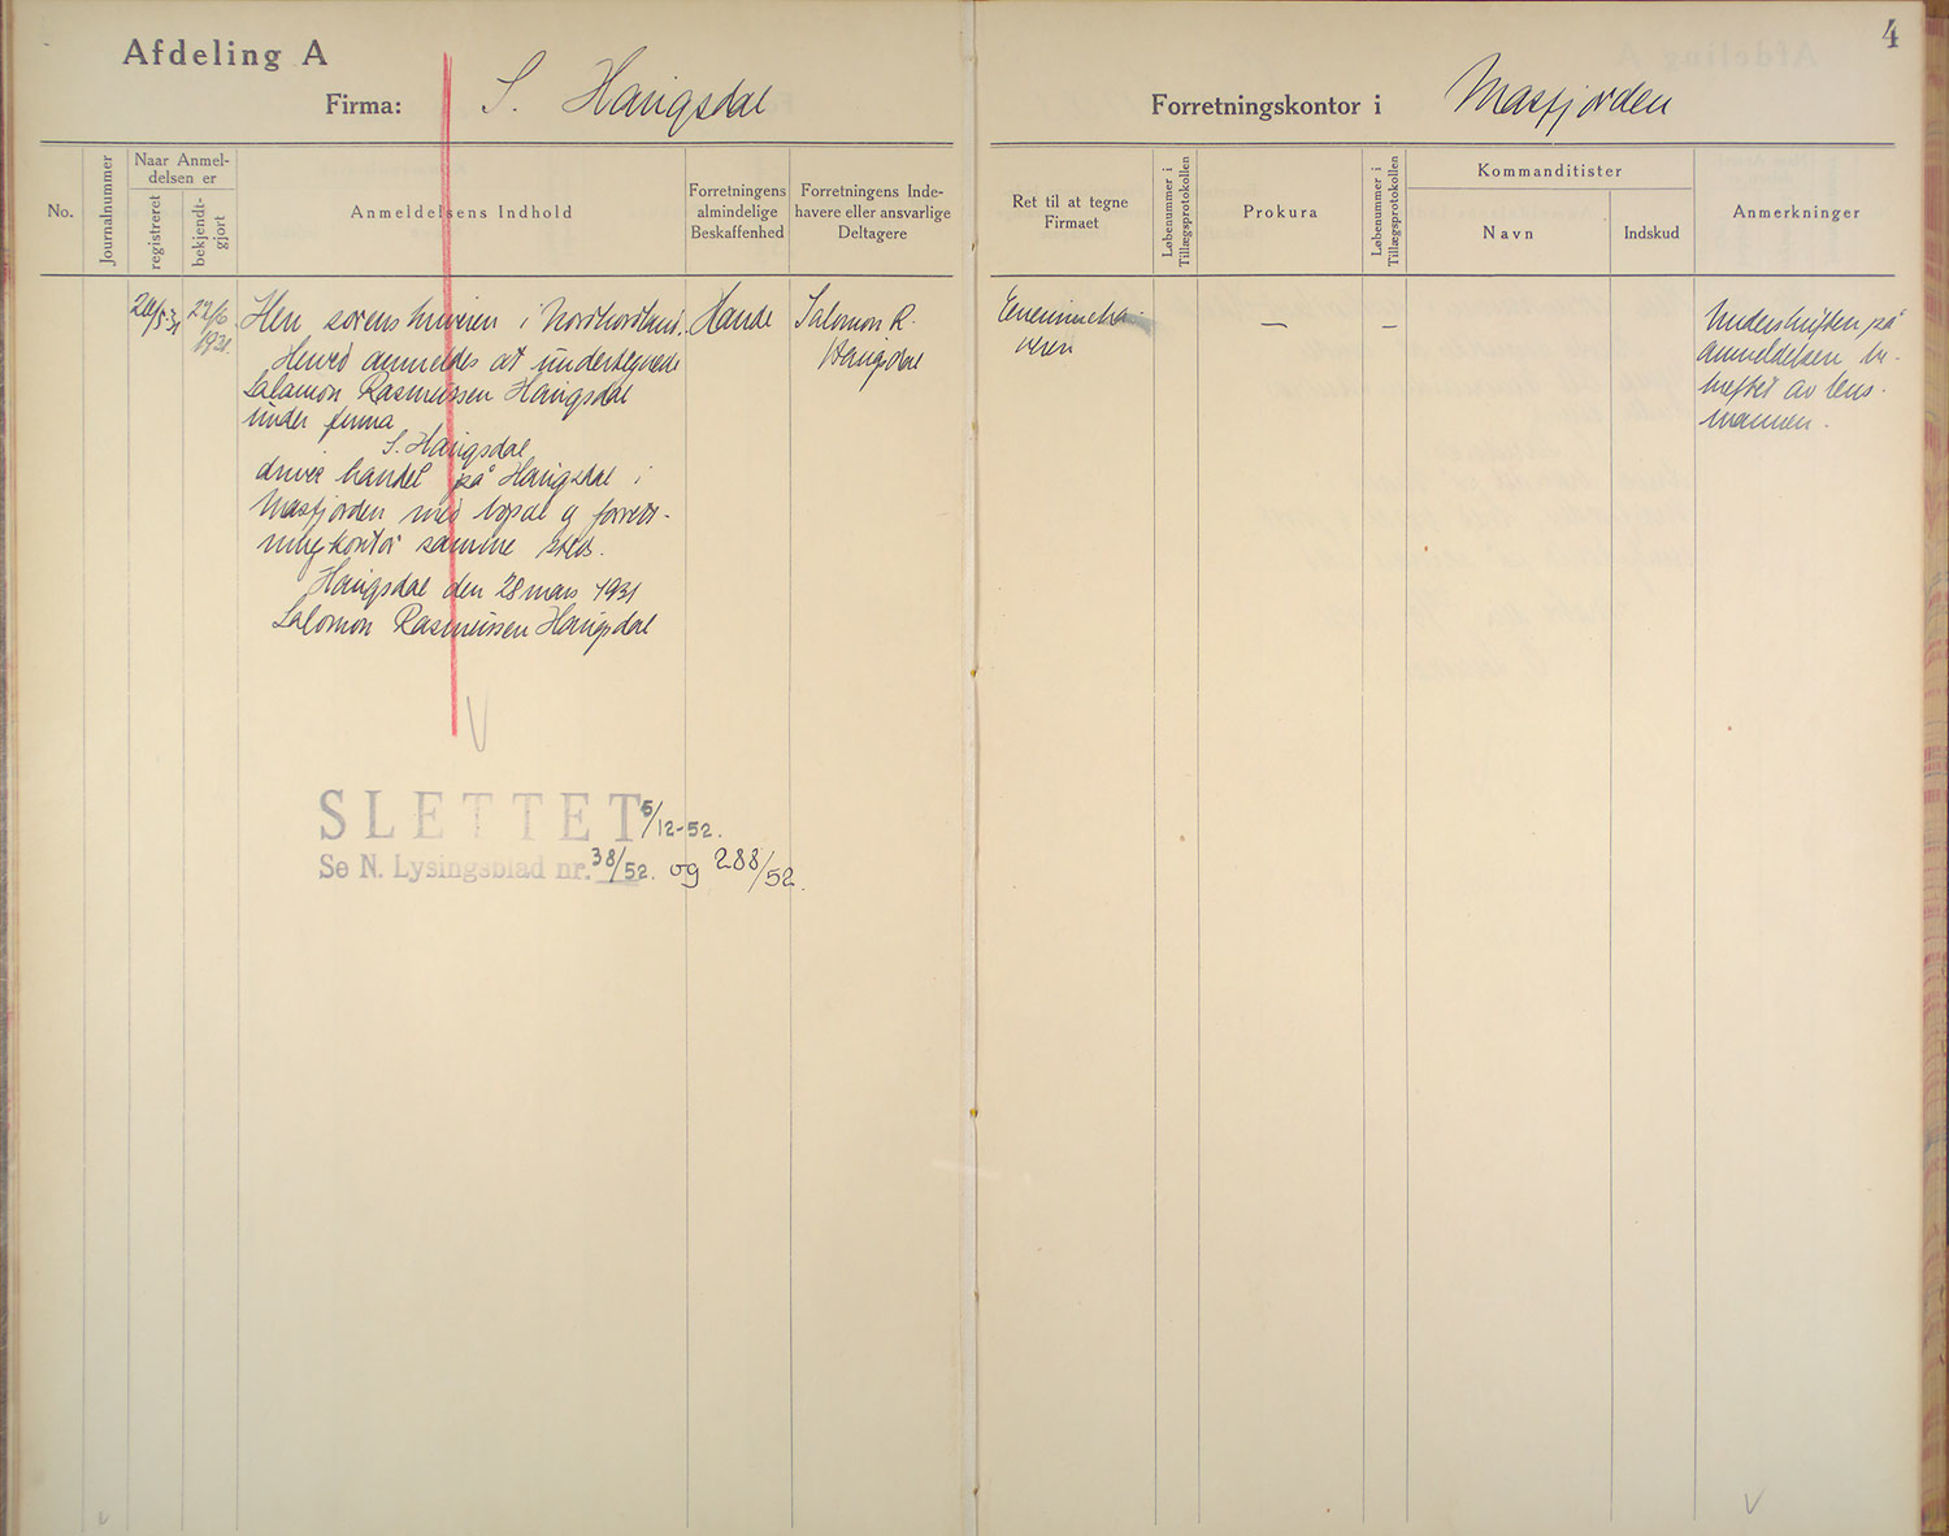 4
Afdeling A
Firma: S. Haugsdal
Forretningskontor i Masfjorden
No.
Journalnummer
Naar Anmel-
delsen er
registreret
bekjendt-
gjort
Anmeldelsens Indhold
Forretningens
almindelige
Beskaffenhed
Forretningens Inde-
havere eller ansvarlige
Deltagere
Ret til at tegne
Firmaet
Løbenummer i
Tillægsprotokollen
Prokura
Løbenummer i
Tillægsprotokollen
Kommanditister
Navn
Indskud
Anmerkninger
22/6
1931.
Herr sorenskriveren i Nordhordland.
Herved anmeldes at undertegnede
Salamon Rasmussen Haugsdal
under firma
S. Haugsdal
driver handel på Haugsdal i
Masfjorden med bopæl og forret-
ningkontor samme sted.
Haugsdal den 28 mars 1931
Salomon Rasmussen Haugsdal
Handel
Salomon R.
Haugsdal
Eneinneha-
veren
—
—
Underskriften på
anmeldelsen be-
kreftet av lens-
mannen.
SLETTET 5/12-52.
Se N. Lysingsblad nr. 38/52. og 288/52.